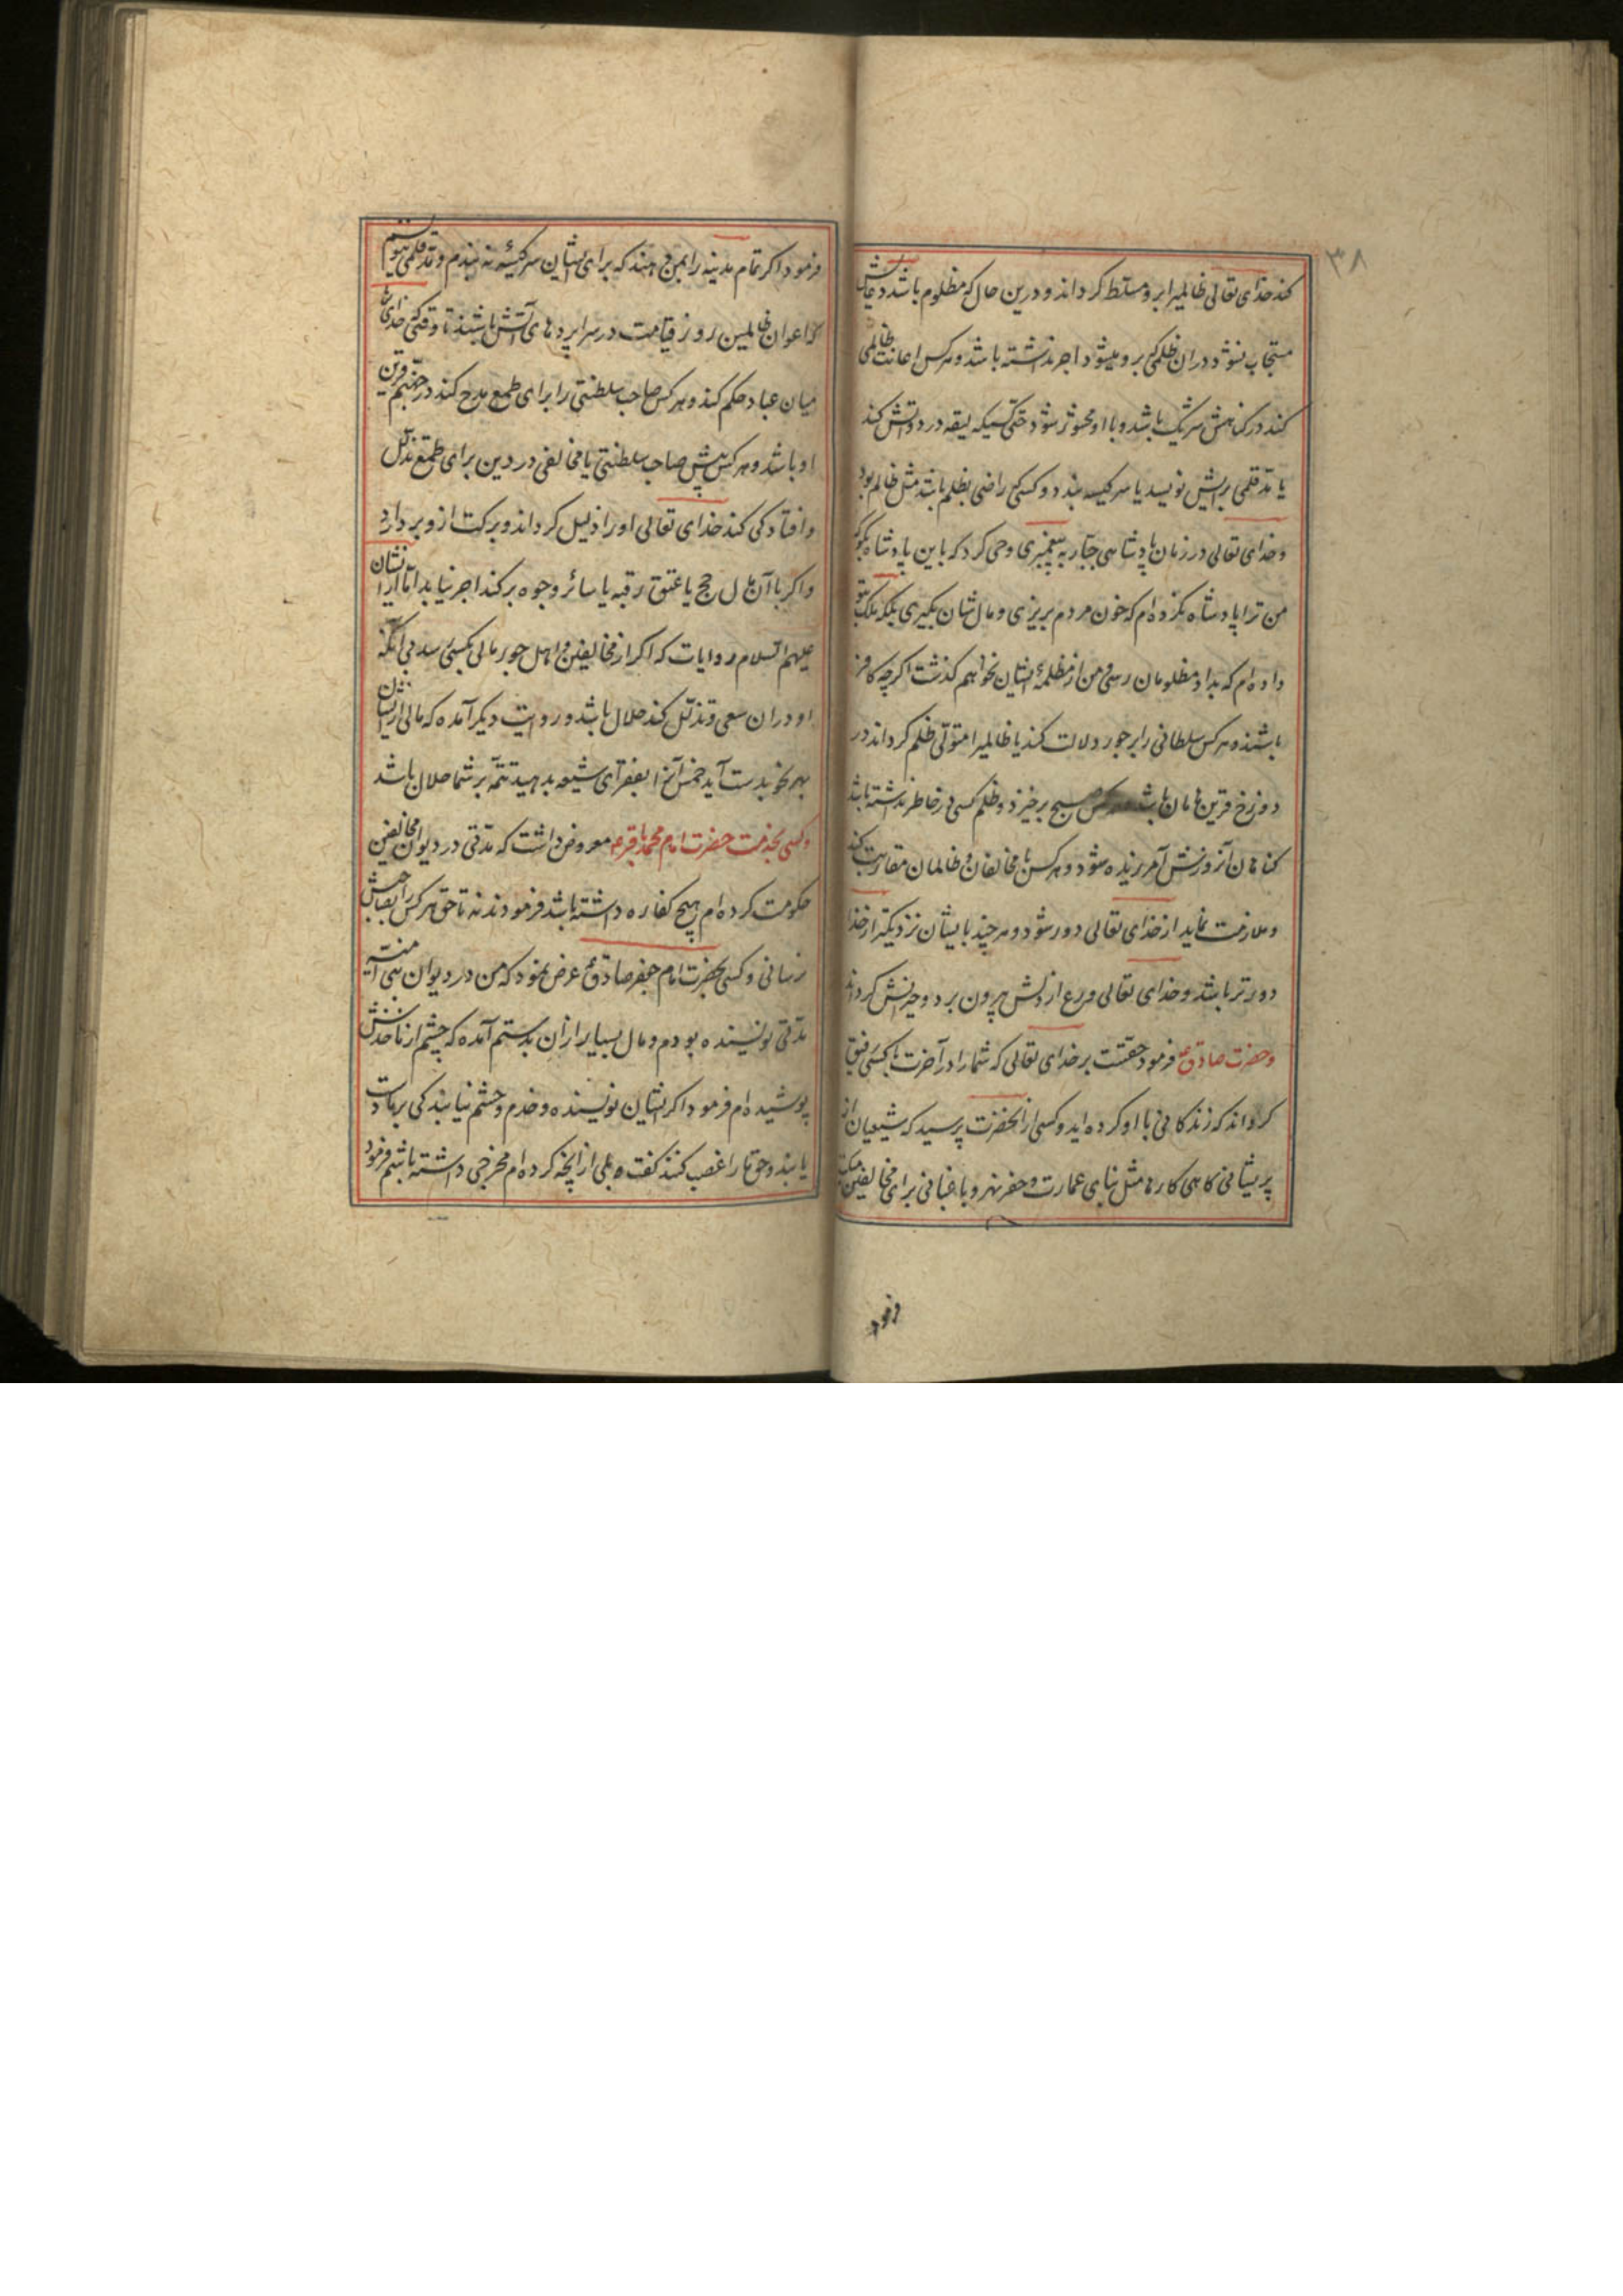 ۳۸
کند خدای تعالی ظالمیرا برو مسلط کرداند و درین حال که مظلوم باشد دعایش
مستجاب نشود و دران ظلمی که برو میشود اجر نداشته باشد و هرکس اعانت ظالمی
کند در کناهش شریک باشد و با او محشور شود حتی کسیکه لیقه در دواتش کند
یا مد قلمی برایش نویسد یا سر کیسه بندد و کسی که راضی بظلم باشد مثل ظالم بود
و خدای تعالی در زمان پادشاهی جبار به پیغمبری وحی کرد که باین پادشاه بگو که
من ترا پادشاه نکرده ام که خون مردم بریزی و مال شان بگیری بلکه ملک بتو
داده ام که بداد مظلومان رسی و من از مظلمهٔ ایشان نخواهم کذشت اکرچه کافر
باشند و هرکس سلطانی را بر جور دلالت کند یا ظالمیرا متولی ظلم کرداند در
دوزخ قرین هامان باشد هرکس صبح برخیزد و ظلم کسی در خاطر نداشته باشد
کناهان آنروزش آمرزیده شود و هرکس با مخالفان و ظالمان مقاربت کند
و ملازمت نماید از خدای تعالی دور شود و هرچند بایشان نزدیکتر از خدا
دورتر باشد و خدای تعالی ورع از دلش بیرون برد و حیرانش کرداند
و حضرت صادق ع فرمود حقست بر خدای تعالی که شما را در آخرت با کسی رفیق
کرداند که زندکانی با او کرده اید و کسی از انحضرت پرسید که شیعیان از
پریشانی کاهی کارها مثل بنای عمارت و حفر نهر و باغبانی برای مخالفین میکنند
فرمود
فرمود اکر تمام مدینه را بمن دهند که برای ایشان سر کیسهٔ نه بندم و مد قلمی ننویسم
که اعوان ظالمین روز قیامت در سراپردهای آتش باشند تا وقتی که خدای تعالی
میان عباد حکم کند و هرکس صاحب سلطنتی را برای طمع مدح کند در جهنم قرین
او باشد و هرکس پیش صاحب سلطنتی یا مخالفی در دین برای طمع تذلل
و افتادکی کند خدای تعالی او را ذلیل کرداند و برکت ازو بردارد
و اکر با آن مال حج یا عتق رقبه یا سائر وجوه بر کند اجر نیابد اما ازیشان
علیهم السلام روایات که اکر از مخالفین و اهل جور مالی بکسی رسد بی آنکه
او دران سعی و تذلل کند حلال باشد و روایت دیکر آمده که مالی ازیشان
بهر نحو بدست آید خمس آنرا بفقرای شیعه بدهید تتمه بر شما حلال باشد
و کسی بخدمت حضرت امام محمد باقر ع معروض داشت که مدتی در دیوان مخالفین
حکومت کرده ام هیچ کفاره داشته باشد فرمودند نه تا حق هرکس را بصاحبش
رسانی و کسی بحضرت امام جعفر صادق ع عرض نمود که من در دیوان بنی امیه
مدتی نویسنده بودم و مال بسیار ازان بدستم آمده که چشم از ماخذش
پوشیده ام فرمود اکر ایشان نویسنده و خدم و حشم نیابند کی بر ما دست
یابند و حق ما را غصب کنند کفت بلی ازانچه کرده ام مخرجی داشته باشم فرمود